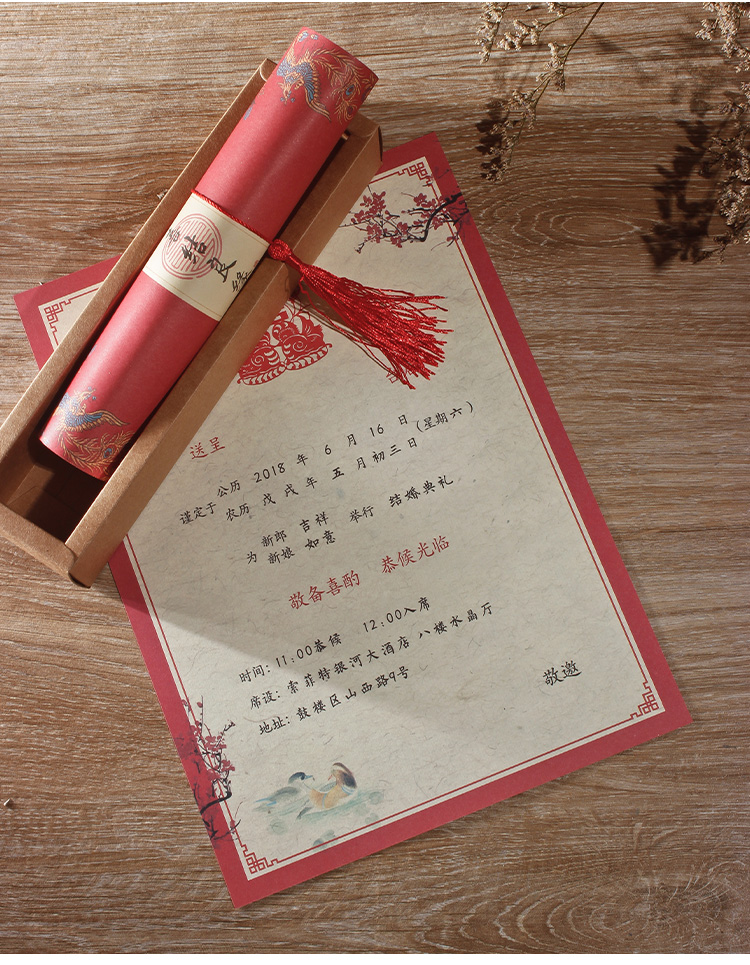 喜结良缘
送呈
公历 2018 年 6 月 16 日 (星期六)
谨定于 农历 戊戌年 五月初三日
新郎 吉祥 举行 结婚典礼
为 新娘 如意
敬备喜酌 恭候光临
时间: 11:00恭候 12:00入席
席设: 索菲特银河大酒店 八楼水晶厅
地址: 鼓楼区山西路9号
敬邀